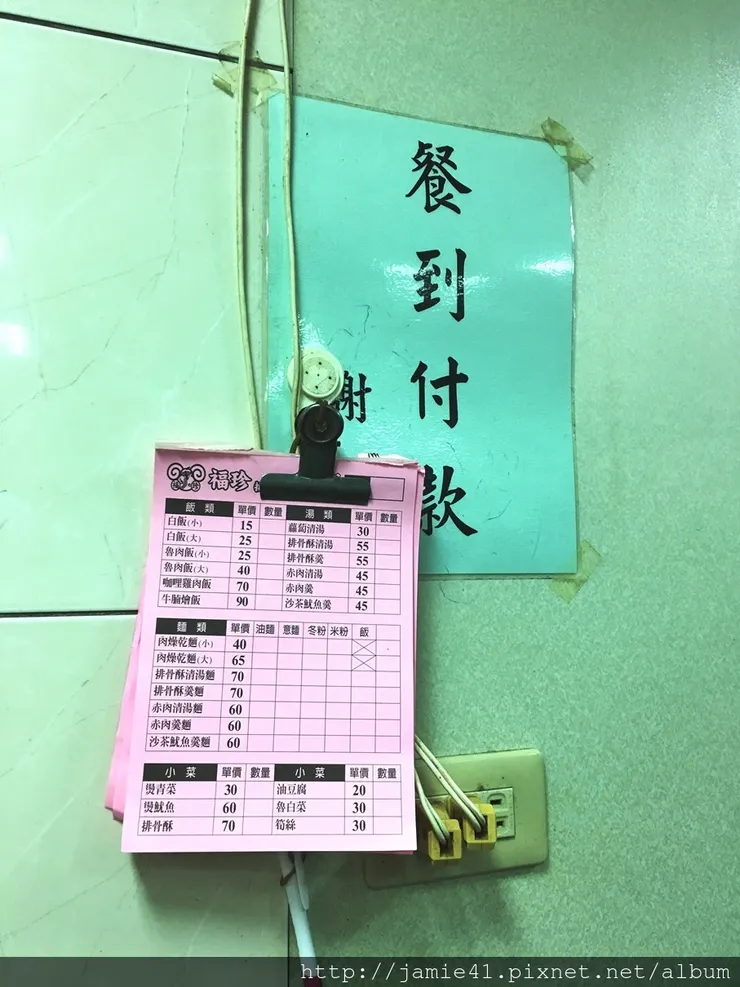 餐到付款
謝
福珍
飯類 單價 數量 湯類 單價 數量
白飯(小) 15 蘿蔔清湯 30
白飯(大) 25 排骨酥清湯 55
魯肉飯(小) 25 排骨酥羹 55
魯肉飯(大) 40 赤肉清湯 45
咖哩雞肉飯 70 赤肉羹 45
牛腩燴飯 90 沙茶魷魚羹 45
麵類 單價 油麵 意麵 冬粉 米粉 飯
肉燥乾麵(小) 40
肉燥乾麵(大) 65
排骨酥清湯麵 70
排骨酥羹麵 70
赤肉清湯麵 60
赤肉羹麵 60
沙茶魷魚羹麵 60
小菜 單價 數量 小菜 單價 數量
燙青菜 30 油豆腐 20
燙魷魚 60 魯白菜 30
排骨酥 70 筍絲 30
http://jamie41.pixnet.net/album